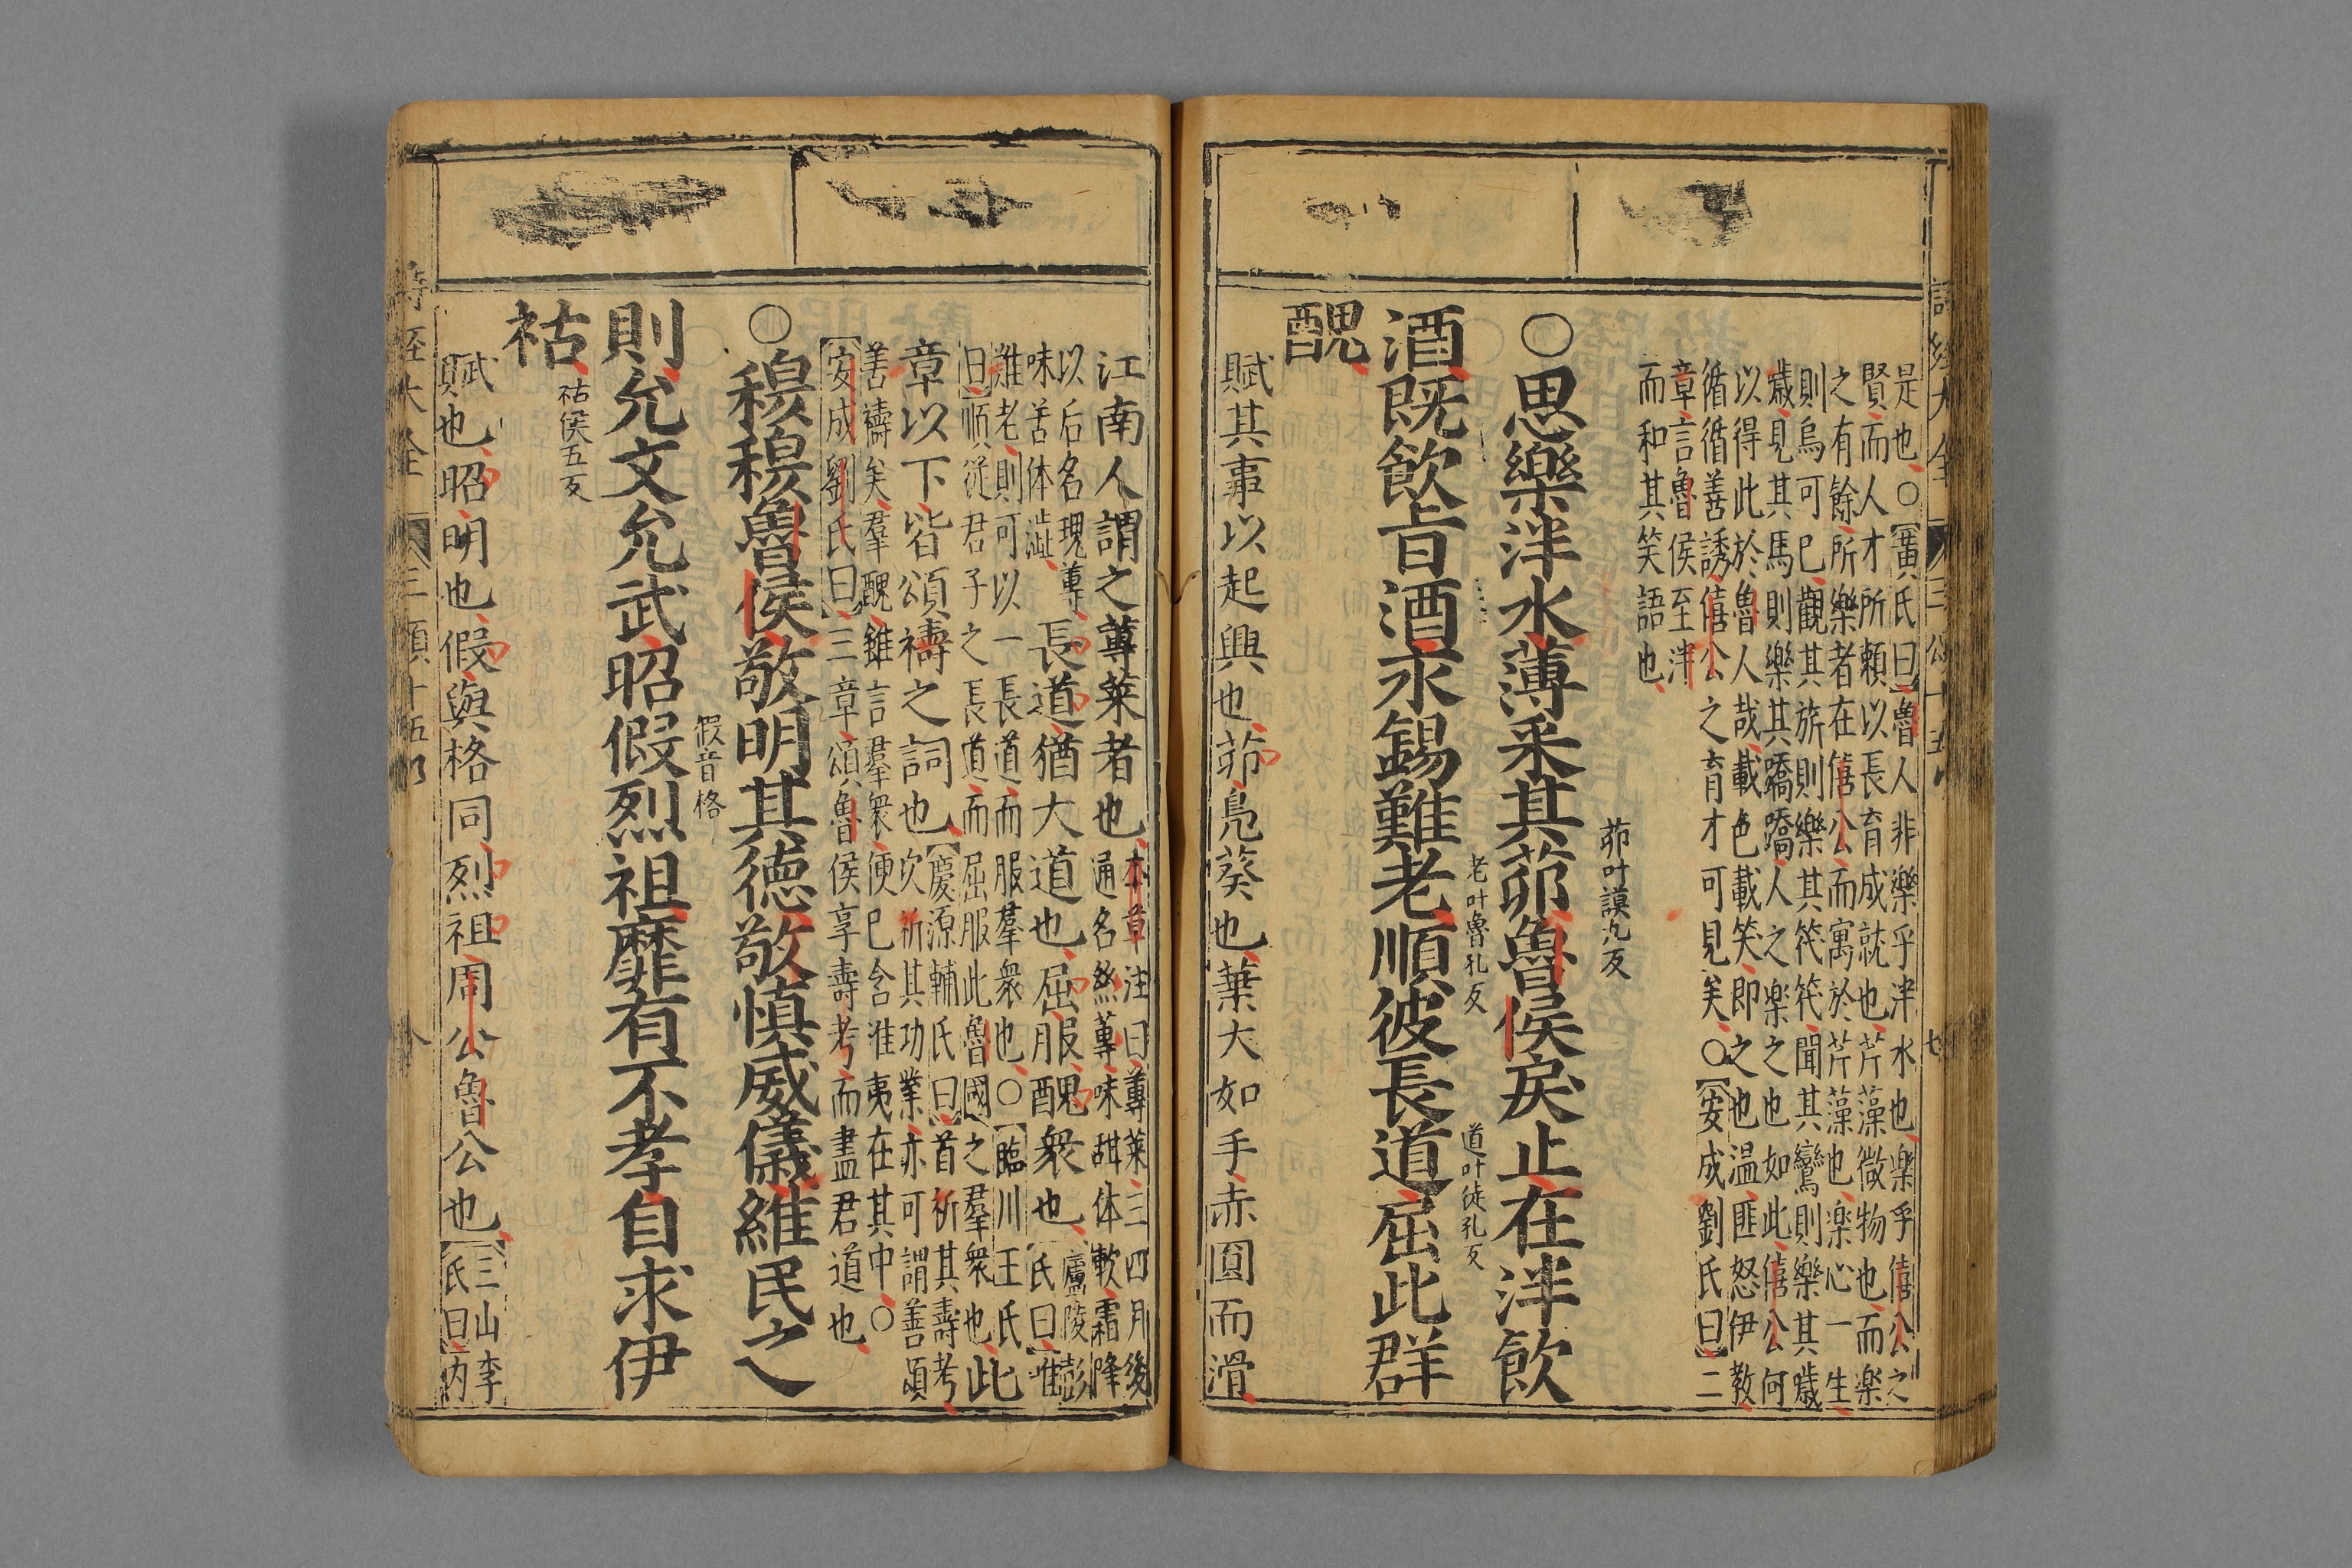 是也○黃氏曰魯人非樂乎泮水也楽乎僖公之
賢而人才所頼以長育成就也芹藻微物也而楽
之有餘所樂者在僖公而寓於芹藻也楽心一生
則烏可已觀其旂則樂其筏筏聞其鸞則樂其噦
噦見其馬則樂其蹻蹻人之楽之也如此僖公何
以得此於魯人哉載色載笑即之也温匪怒伊教
循循善誘僖公之育才可見矣○安成劉氏曰二
章言魯侯至泮
而和其笑語也
茆叶謨九反
○思樂泮水薄采其茆魯侯戾止在泮飲
老叶魯孔反 道叶徒孔反
酒既飲旨酒永錫難老順彼長道屈此群
醜
賦其事以起興也茆鳧葵也葉大如手赤圓而滑
江南人謂之蓴菜者也本章注曰蓴菜三四月後
通名絲蓴味甜体軟霜降
以后名瑰蓴
味苦体澁
長道猶大道也屈服醜衆也廬陵彭
氏曰唯
難老則可以一長道而服羣衆也○臨川王氏
曰順從君子之長道而屈服此魯國之羣衆也此
章以下皆頌禱之詞也慶源輔氏曰首祈其壽考
次祈其功業亦可謂善頌
善禱矣羣醜雖言羣衆便已含淮夷在其中○
安成劉氏曰三章頌魯侯享壽考而盡君道也
○穆穆魯侯敬明其德敬慎威儀維民之
假音格
則允文允武昭假烈祖靡有不孝自求伊
祜祜侯五反
賦也昭明也假與格同烈祖周公魯公也三山李
氏曰内
詩經大全 三頌十五卷